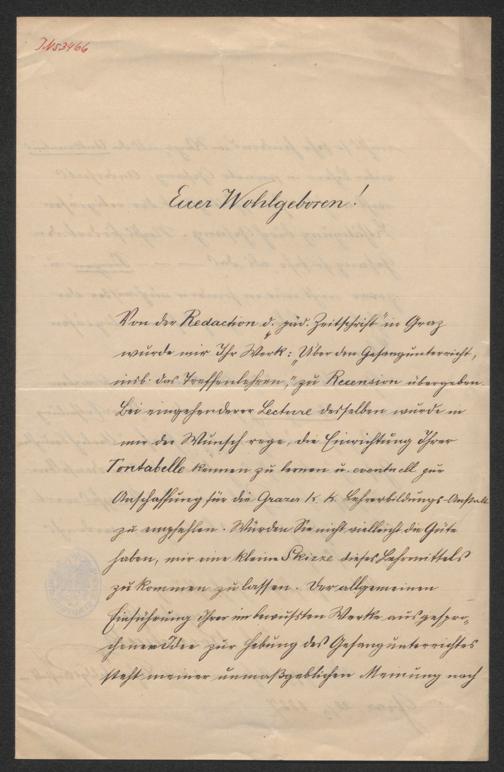 INs 3466
Euer Wohlgeboren!
Von der Redaction d. "päd. Zeitschrift" in Graz
wurde mir Ihr Werk: "Über den Gesangunterricht,
insb. das Treffenlehren," zu Recension übergeben.
Bei eingehenderer Lecture desselben wurde in
mir der Wunsch rege, die Einrichtung Ihrer
Tontabelle kennen zu lernen u. eventuell zur
Anschaffung für die Grazer k. k. Lehrerbildungs-Anstalt
zu empfehlen. Würden Sie nicht vielleicht die Güte
haben, mir eine kleine Skizze dieses Lehrmittels
zukommen zu lassen. Der allgemeinen
Einführung Ihrer im bewußten Werke ausgespro-
chenen Idee zur Hebung des Gesangunterrichtes
steht meiner unmaßgeblichen Meinung nach